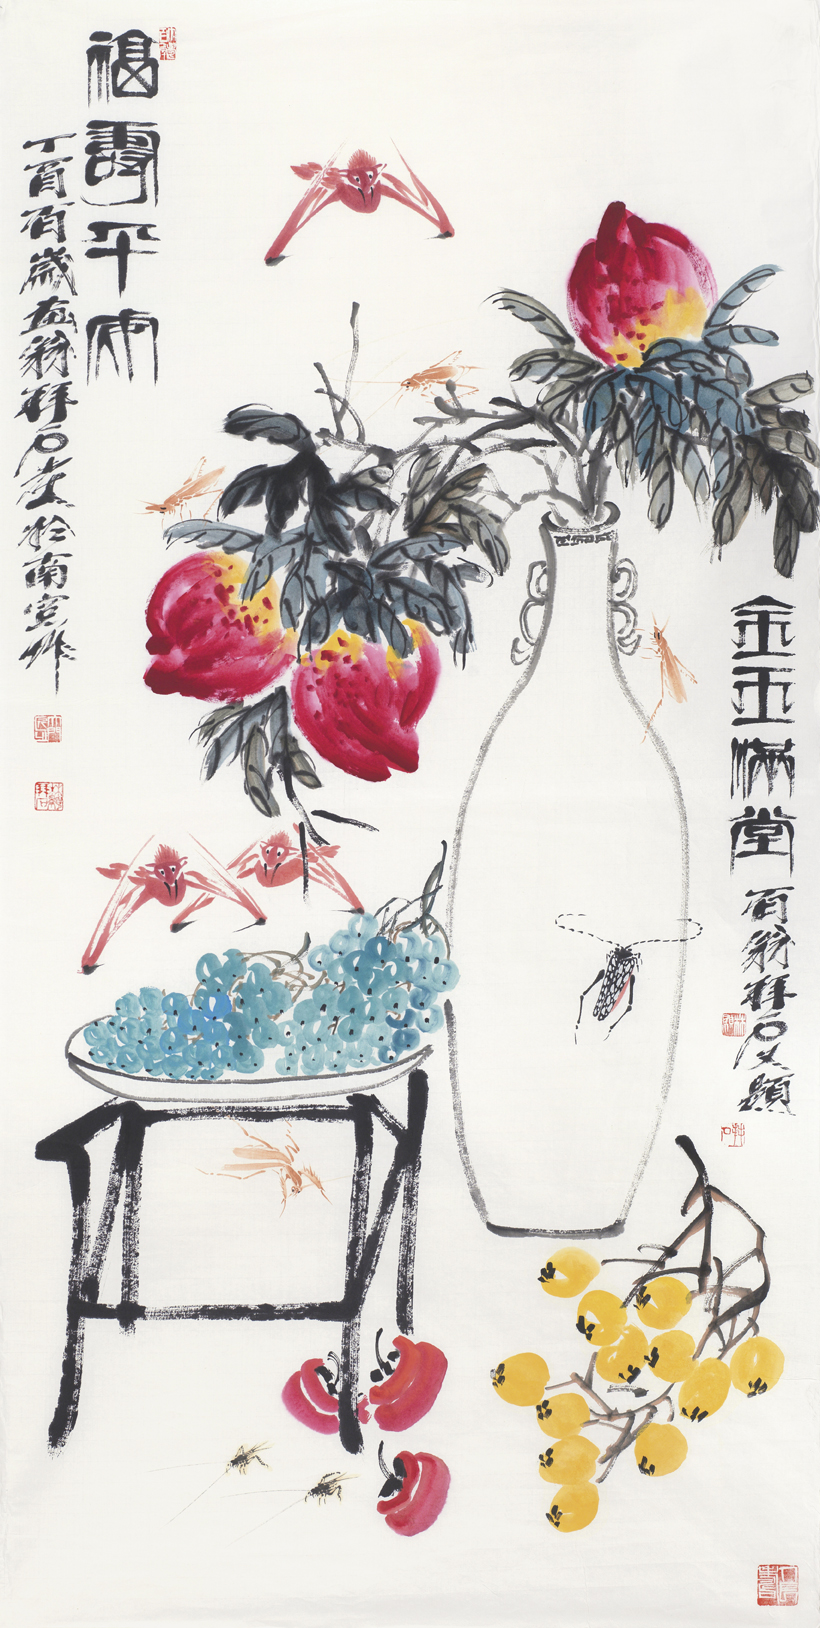 金玉滿堂
百翁拜石又題
福壽平安
丁酉百歲画翁拜石於南宫作